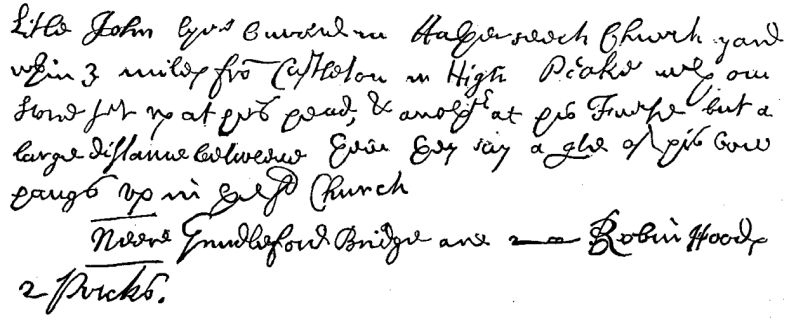 Litle John lyes buried in Hatherseech Church yard
wthin 3 miles frō Castleton in High Peake wth one
Stone set up at his head, & anothr at his Feete but a
large distance betweene them They say a pte of his bow
hangs up in the sd Church
Neere Grindleford Bridge are Robin Hoods
2 Pricks.